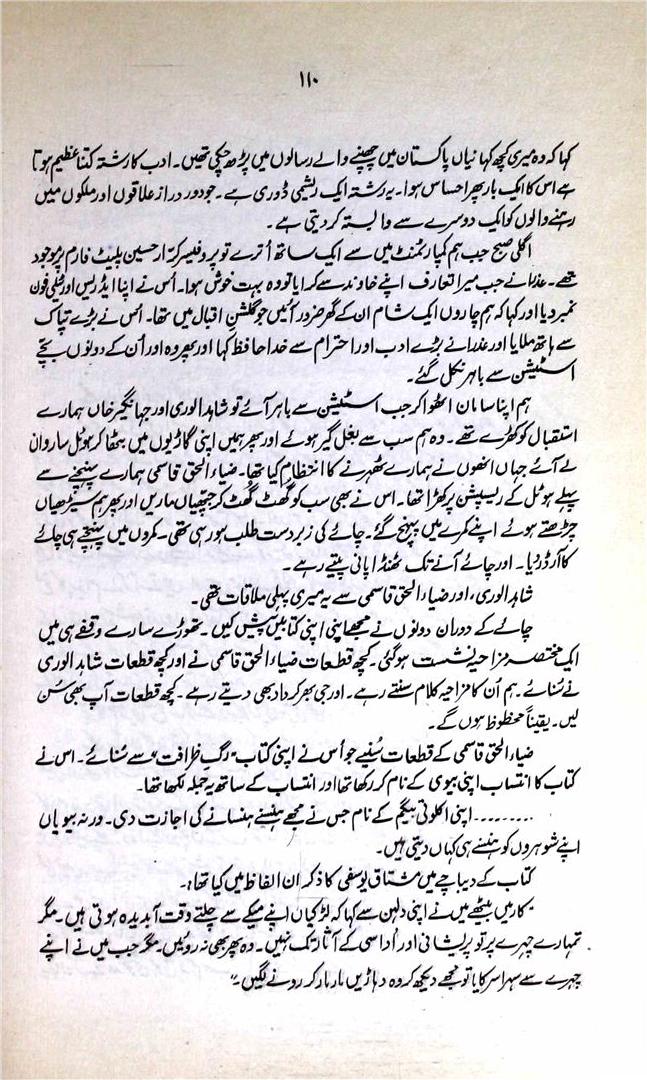 ۱۱۰
کہا کہ وہ میری کچھ کہانیاں پاکستان میں چھپنے والے رسالوں میں پڑھ چکی تھیں۔ ادب کا رشتہ کتنا عظیم ہوتا
ہے اس کا ایک بار پھر احساس ہوا۔ یہ رشتہ ایک ریشمی ڈوری ہے۔ جو دور دراز علاقوں اور ملکوں میں
رہنے والوں کو ایک دوسرے سے وابستہ کر دیتی ہے۔
اگلی صبح جب ہم کمپارٹمنٹ میں سے ایک ساتھ اُترے تو پروفیسر کرّار حسین پلیٹ فارم پر موجود
تھے۔ عذرا نے جب میرا تعارف اپنے خاوند سے کرایا تو وہ بہت خوش ہوا۔ اُس نے اپنا ایڈریس اور ٹیلی فون
نمبر دیا اور کہا کہ ہم چاروں ایک شام ان کے گھر ضرور آئیں جو گلشنِ اقبال میں تھا۔ اُس نے بڑے تپاک
سے ہاتھ ملایا اور عذرا نے بڑے ادب اور احترام سے خدا حافظ کہا اور پھر وہ اور اُن کے دونوں بچّے
اسٹیشن سے باہر نکل گئے۔
ہم اپنا سامان اٹھوا کر جب اسٹیشن سے باہر آئے تو شاہد الوری اور جہانگیر خاں ہمارے
استقبال کو کھڑے تھے۔ وہ ہم سب سے بغل گیر ہوئے اور پھر ہمیں اپنی گاڑیوں میں بٹھا کر ہوٹل ساروان
لے آئے جہاں انھوں نے ہمارے ٹھہرنے کا انتظام کیا تھا۔ ضیاء الحق قاسمی ہمارے پہنچنے سے
پہلے ہوٹل کے ریسپشن پر کھڑا تھا۔ اس نے بھی سب کو گھٹ گھٹ کر جپھیاں ماریں اور پھر ہم سیڑھیاں
چڑھتے ہوئے اپنے کمرے میں پہنچ گئے۔ چائے کی زبردست طلب ہو رہی تھی۔ کمروں میں پہنچتے ہی چائے
کا آرڈر دیا۔ اور چائے آنے تک ٹھنڈا پانی پیتے رہے۔
شاہد الوری، اور ضیاء الحق قاسمی سے یہ میری پہلی ملاقات تھی۔
چائے کے دوران دونوں نے مجھے اپنی اپنی کتابیں پیش کیں۔ تھوڑے سارے وقفے ہی میں
ایک مختصر مزاحیہ نشست ہو گئی۔ کچھ قطعات ضیاء الحق قاسمی نے اور کچھ قطعات شاہد الوری
نے سُنائے۔ ہم اُن کا مزاحیہ کلام سنتے رہے۔ اور جی بھر کر داد بھی دیتے رہے۔ کچھ قطعات آپ بھی سُن
لیں۔ یقیناً محظوظ ہوں گے۔
ضیاء الحق قاسمی کے قطعات سُنیے جو اُس نے اپنی کتاب "رگِ ظرافت" سے سُنائے۔ اس نے
کتاب کا انتساب اپنی بیوی کے نام کر رکھا تھا اور انتساب کے ساتھ یہ جملہ لکھا تھا۔
.........اپنی اکلوتی بیگم کے نام جس نے مجھے ہنسنے ہنسانے کی اجازت دی۔ ورنہ بیویاں
اپنے شوہروں کو ہنسنے ہی کہاں دیتی ہیں۔
کتاب کے دیباچے میں مشتاق یوسفی کا ذکر ان الفاظ میں کیا تھا:۔
"کار میں بیٹھے میں نے اپنی دلہن سے کہا کہ لڑکیاں اپنے میکے سے چلتے وقت آبدیدہ ہوتی ہیں۔ مگر
تمہارے چہرے پر تو پریشانی اور اُداسی کے آثار تک نہیں۔ وہ پھر بھی نہ روئیں۔ مگر جب میں نے اپنے
چہرے سے سہرا سرکایا تو مجھے دیکھ کر وہ دہاڑیں مار مار کر رونے لگیں۔"